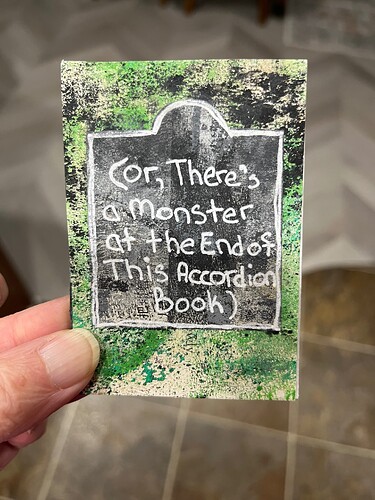 (or, There's
a monster
at the End of
This Accordion
Book)